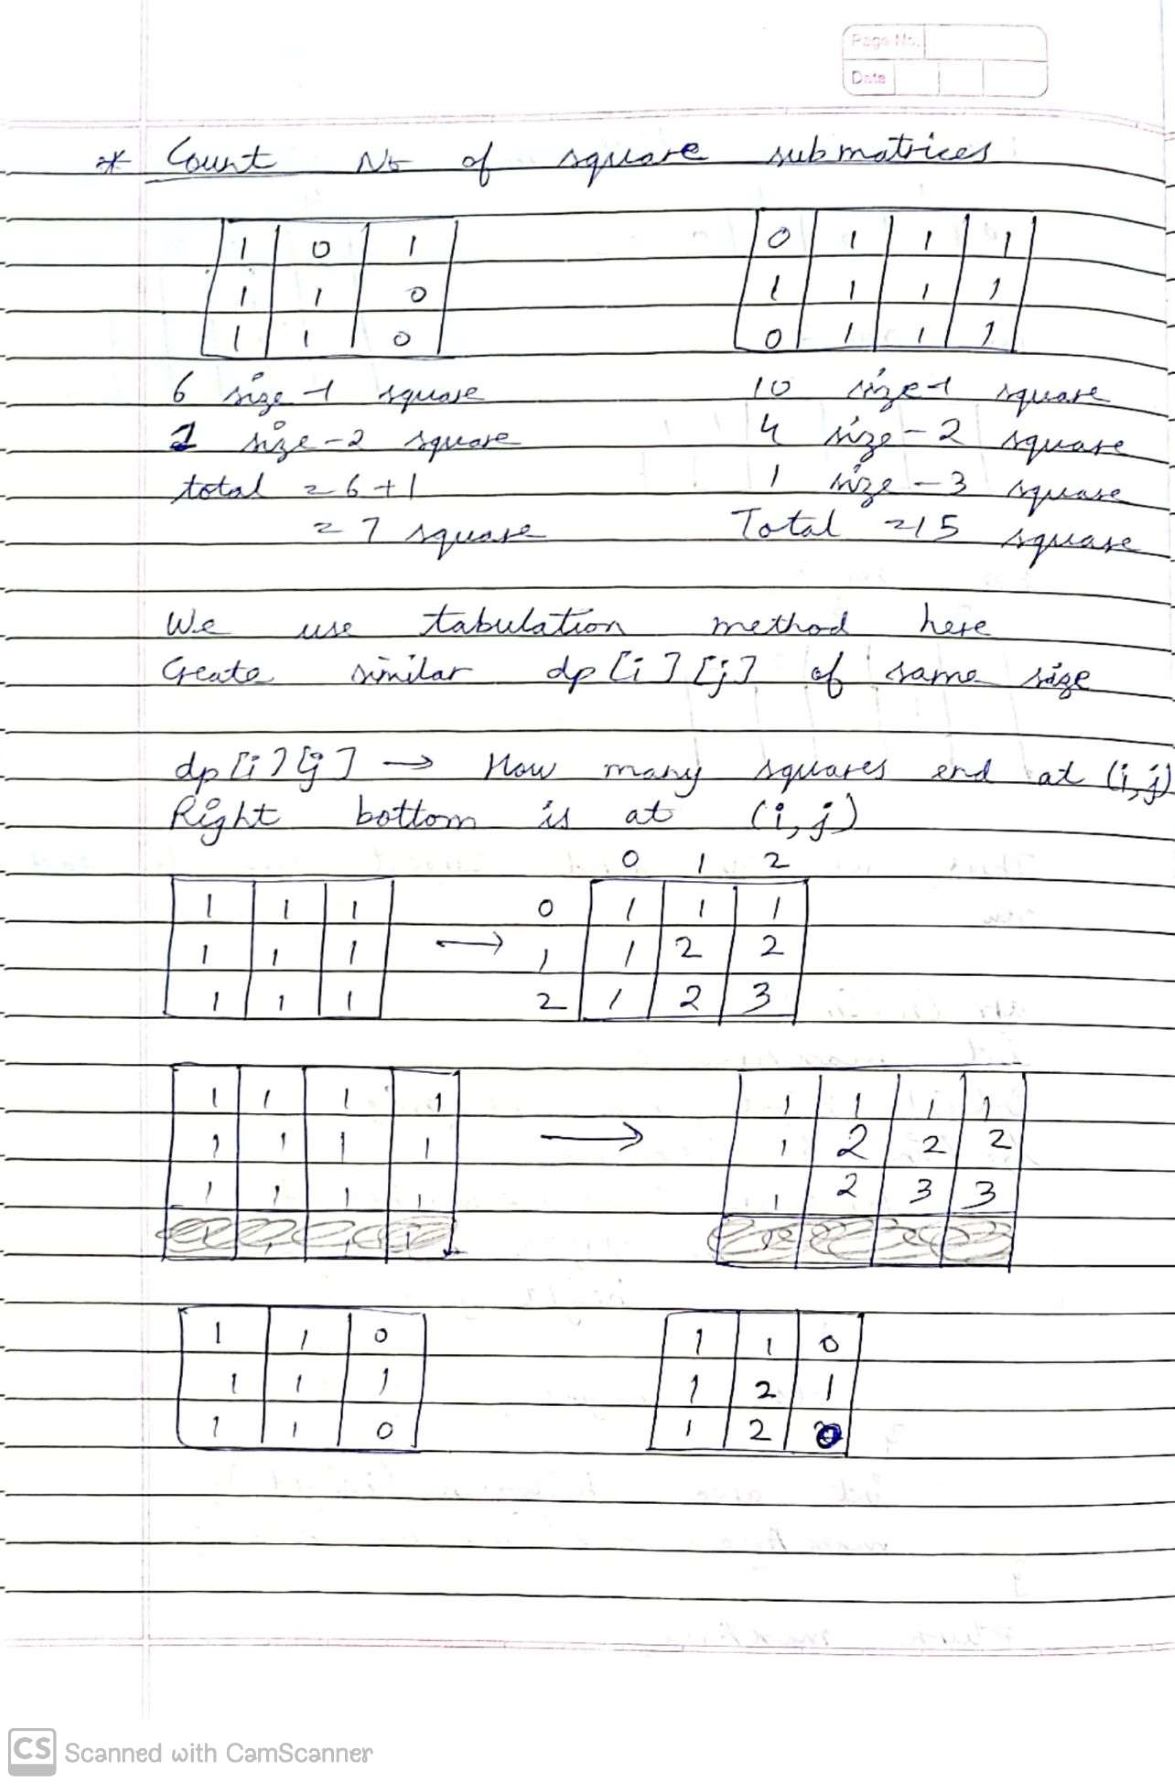 Page No.
Date
* Count No of square submatrices
1 0 1 0 1 1 1
1 1 0 1 1 1 1
1 1 0 0 1 1 1
6 size-1 square 10 size-1 square
1 size-2 square 4 size-2 square
total = 6+1 1 size-3 square
= 7 square Total = 15 square
We use tabulation method here
Create similar dp[i][j] of same size
dp[i][j] → How many squares end at (i,j)
Right bottom is at (i,j)
0 1 2
1 1 1 0 1 1 1
1 1 1 → 1 1 2 2
1 1 1 2 1 2 3
1 1 1 1 1 1 1 1
1 1 1 1 → 1 2 2 2
1 1 1 1 1 2 3 3
1 1 0 1 1 0
1 1 1 1 2 1
1 1 0 1 2 0
CS Scanned with CamScanner